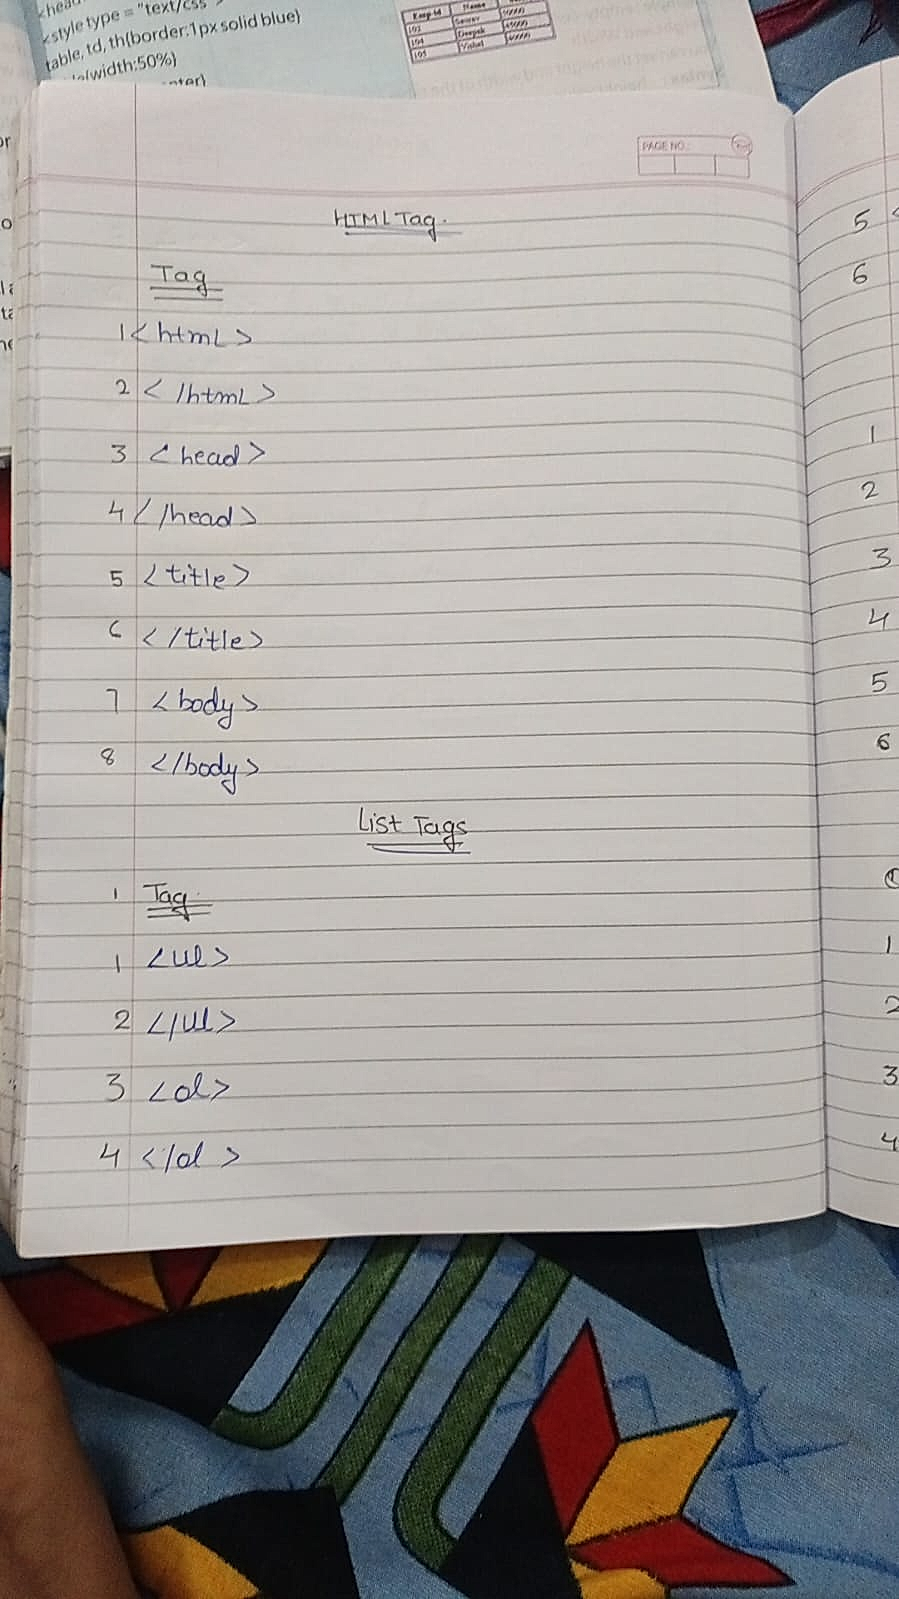 <style type = "text/css">
table, td, th{border:1px solid blue}
{width:50%}
Emp id Name
103
104 Deepak
105 Vishal
PAGE NO.:
HTML Tag.
Tag
1 <html>
2 </html>
3 <head>
4 </head>
5 <title>
6 </title>
7 <body>
8 </body>
List Tags
1 Tag.
1 <ul>
2 </ul>
3 <ol>
4 </ol>
5 <
6
1
2
3
4
5
6
1
2
3
4